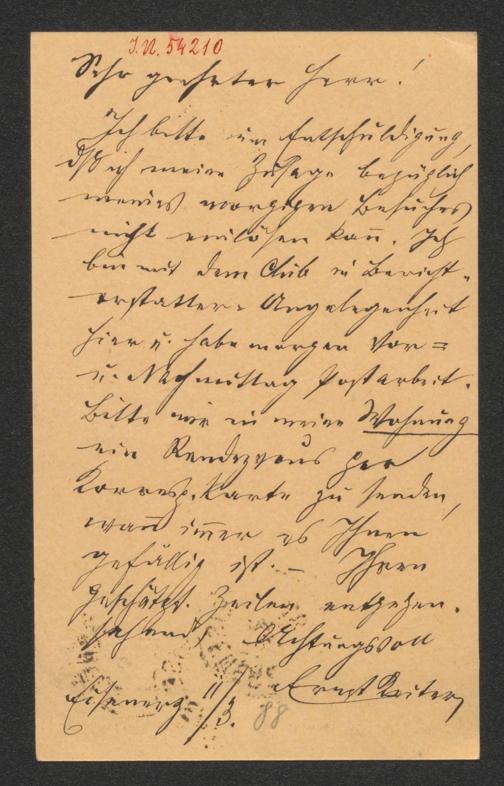 I.N. 54210
Sehr geehrter Herr!
Ich bitte um Entschuldigung,
dß ich meine Zusage bezüglich
meines morgigen Besuches
nicht einlösen kann. Ich
bin mit dem Club in Bericht-
erstatter-Angelegenheit
hier u. habe morgen Vor=
u. Nachmittag Postarbeit.
Bitte mir in meine Wohnung
ein Rendezvous per
Korresp. Karte zu senden,
wann immer es Ihnen
gefällig ist. – Ihren
geschätzt. Zeilen entgegen-
sehend, Achtungsvoll
Ernst Reiter
Eisenerz 11/3. 88